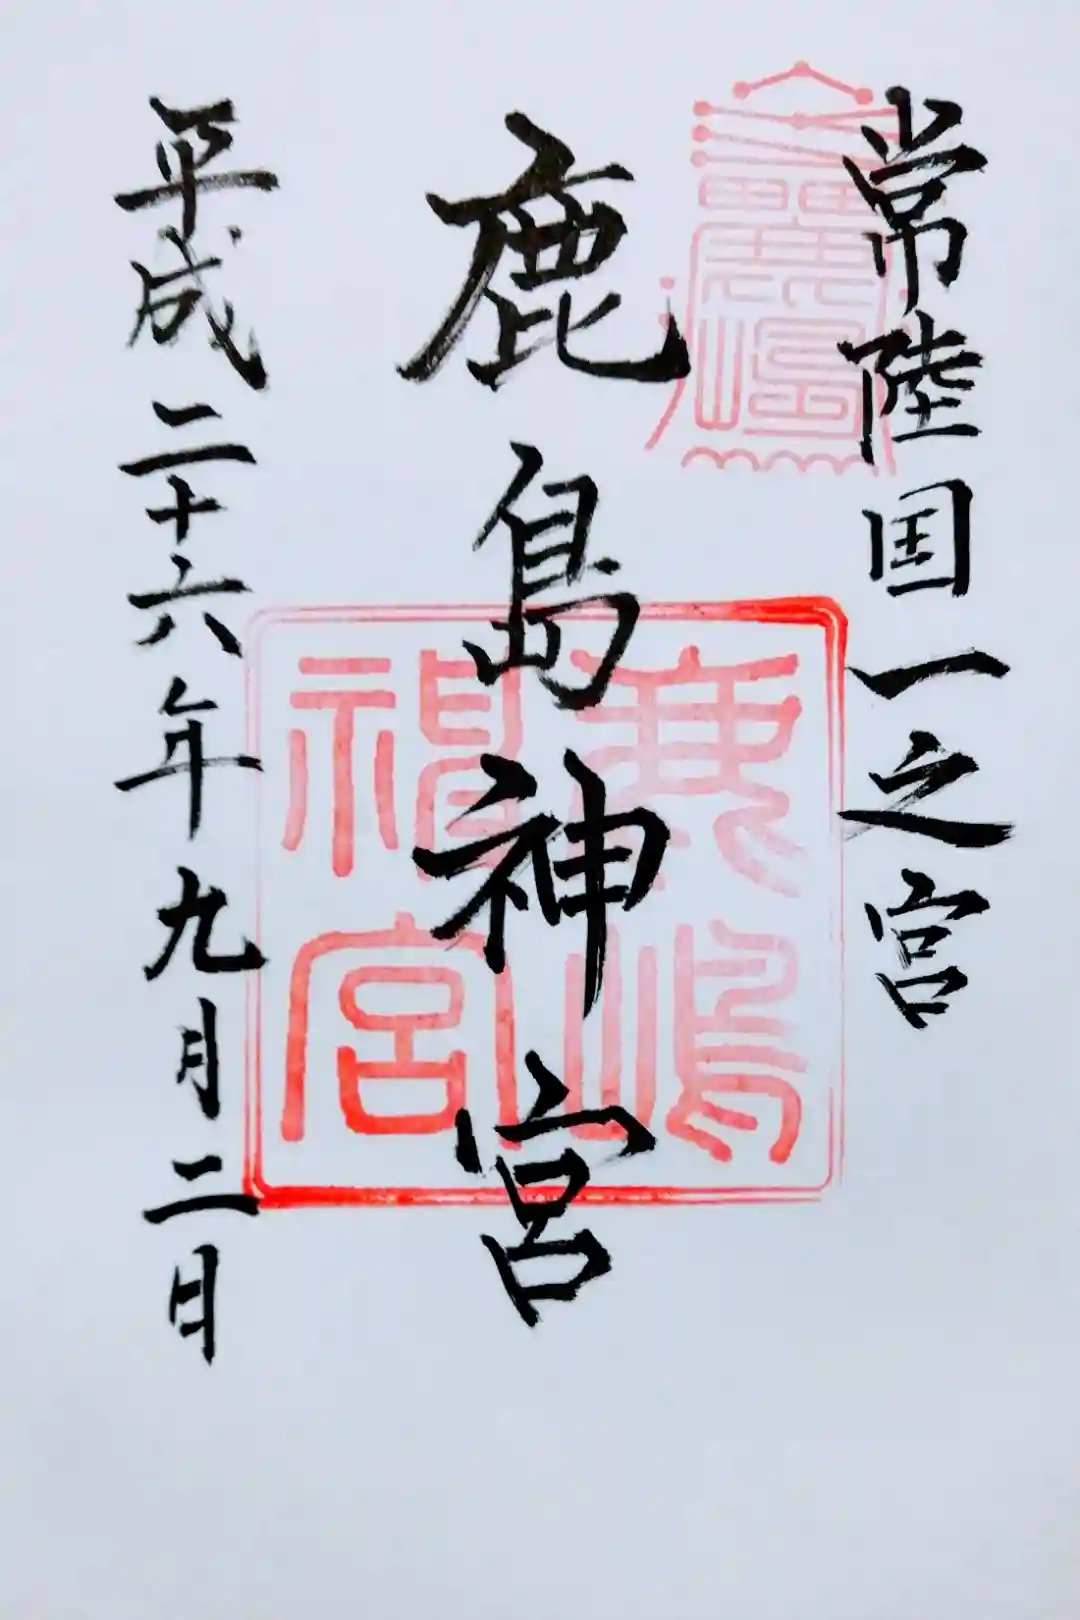 常陸国一之宮
鹿島神宮
平成二十六年九月二日
鹿嶋神宮